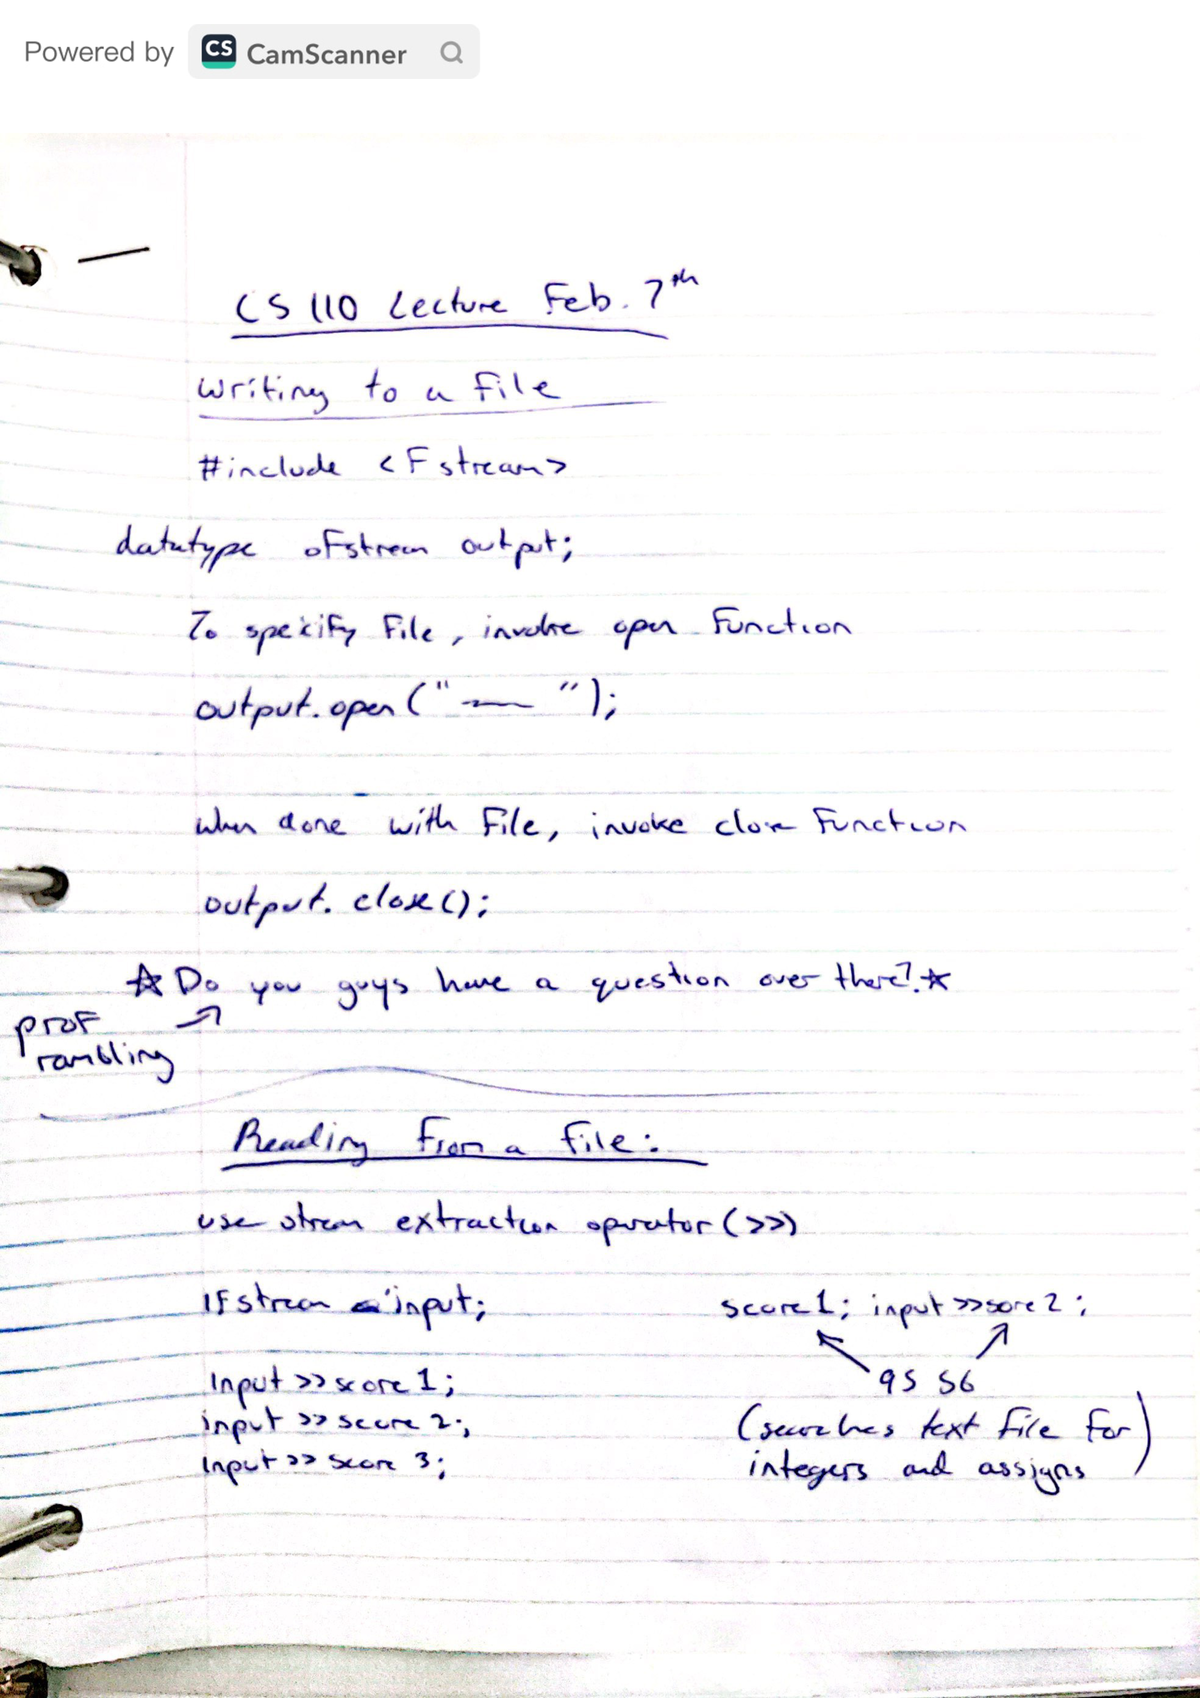 Powered by CS CamScanner
CS 110 Lecture Feb. 7th
Writing to a file
#include <Fstream>
datatype ofstream output;
To specify File, invoke open Function
output.open("    ");
When done with File, invoke close Function
output.close();
☆ Do you guys have a question over there? ☆
prof
rambling
Reading From a file:
use stream extraction operator (>>)
IFstream input;
score 1; input >>sore 2;
95 56
Input >> score 1;
input >> score 2;
Input >> score 3;
(searches text file for
integers and assigns)